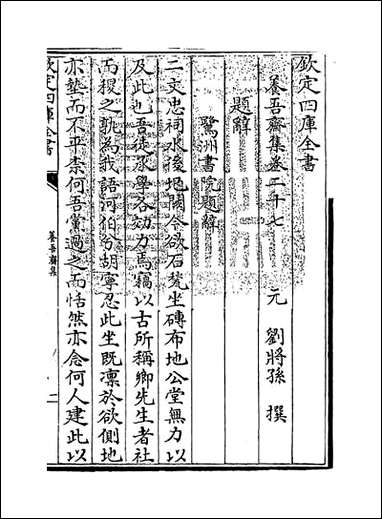 欽定四庫全書
養吾齋集卷二十七
元　劉將孫　撰
題辭
鷺州書院題辭
二文忠祠水後圯闕今欲石甃坐磚布地公堂無力以
及此也吾徒承學各効力焉竊以古所稱鄉先生者社
而稷之孰為我語河伯兮胡寧忍此坐既凛於欲側地
亦墊而不平柰何吾黨過之而恬然亦念何人建此以
欽定四庫全書
養吾齋集
一